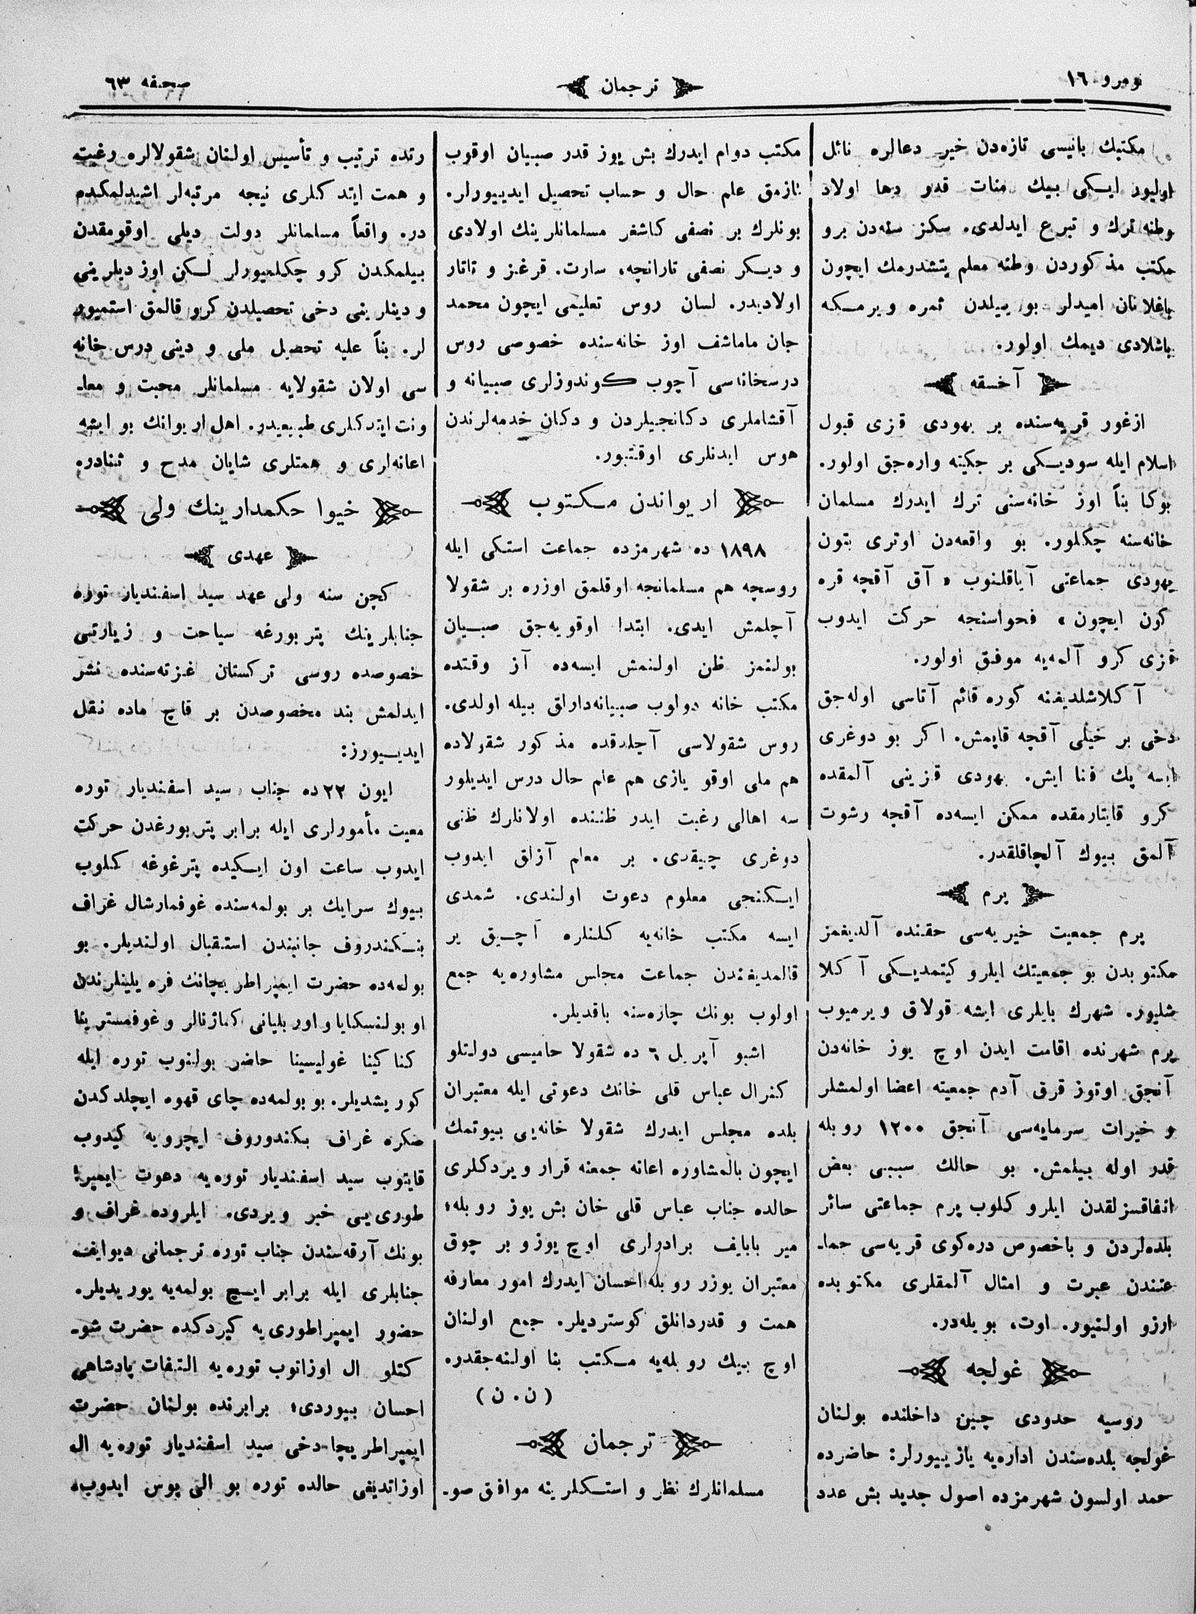 نومرو ١٦
ترجمان
صحیفه ٦٣
مکتبك بانیسی تازه‌دن خیر دعالره نائل
اولیور ایکی بیك منات قدر دها اولاد
وطنه ترك و تبرع ایدلدی. سکز سنه‌دن برو
مکتب مذکوردن وطنه معلم یتشدرمك ایچون
باغلانان امیدلر بو ییلدن ثمره ویرمکه
باشلادی دیمك اولور.
آخسقه
ازغور قریه‌سنده بر یهودی قزی قبول
اسلام ایله سودیکی بر جکیته واره‌جق اولور.
بوکا بناً اوز خانه‌سنی ترك ایدرك مسلمان
خانه‌سنه چکلور. بو واقعه‌دن اوتری بتون
یهودی جماعتی آیاقلنوب « آق آقچه قره
کون ایچون » فحواسنجه حرکت ایدوب
قزی کرو آلمه‌یه موفق اولور.
آکلاشلدیغنه کوره قائم آتاسی اوله‌جق
دخی بر خیلی آقچه قاپمش. اکر بو دوغری
ایسه پك فنا ایش. یهودی قزینی آلمقده
کرو قایتارمقده ممکن ایسه‌ده آقچه رشوت
آلمق بیوك آلچاقلقدر.
پرم
پرم جمعیت خیریه‌سی حقنده آلدیغمز
مکتوبدن بو جمعیتك ایلرو کیتمدیکی آکلا
شلیور. شهرك بایلری ایشه قولاق ویرمیوب
پرم شهرنده اقامت ایدن اوچ یوز خانه‌دن
آنجق اوتوز قرق آدم جمعیته اعضا اولمشلر
و خیرات سرمایه‌سی آنجق ١٢٠٠ روبله
قدر اوله بیلمش. بو حالك سببی بعض
اتفاقسزلقدن ایلرو کلوب پرم جماعتی سائر
بلده‌لردن و باخصوص دره‌کوی قریه‌سی جما-
عتندن عبرت و امثال آلمقلری مکتوبده
ارزو اولنیور. اوت، بویله‌در.
غولجه
روسیه حدودی چین داخلنده بولنان
غولجه بلده‌سندن اداره‌یه یازییورلر: حاضرده
حمد اولسون شهرمزده اصول جدید بش عدد
مکتب دوام ایدرك بش یوز قدر صبیان اوقوب
یازمق علم حال و حساب تحصیل ایدییورلر.
بونلرك بر نصفی کاشغر مسلمانلرینك اولادی
و دیکر نصفی تارانچه، سارت. قرغز و تاتار
اولادیدر. لسان روس تعلیمی ایچون محمد
جان ماماشف اوز خانه‌سنده خصوصی روس
درسخانه‌سی آچوب کوندوزلری صبیانه و
آقشاملری دکانجیلردن و دکان خدمه‌لرندن
هوس ایدنلری اوقتیور.
اریواندن مکتوب
١٨٩٨ ده شهرمزده جماعت استکی ایله
روسچه هم مسلمانجه اوقلمق اوزره بر شقولا
آچلمش ایدی. ابتدا اوقویه‌جق صبیان
بولنمز ظن اولنمش ایسه‌ده آز وقتده
مکتب خانه دولوب صبیانه‌دارالق بیله اولدی.
روس شقولاسی آچلدقده مذکور شقولاده
هم ملی اوقو یازی هم علم حال درس ایدیلور
سه اهالی رغبت ایدر ظننده اولانلرك ظنی
دوغری چیقدی. بر معلم آزلق ایدوب
ایکنجی معلوم دعوت اولندی. شمدی
ایسه مکتب خانه‌یه کلنلره آچیق یر
قالمدیغندن جماعت مجلس مشاوره‌یه جمع
اولوب بونك چاره‌سنه باقدیلر.
اشبو آپریل ٦ ده شقولا حامیسی دولتلو
کنرال عباس قلی خانك دعوتی ایله معتبران
بلده مجلس ایدرك شقولا خانه‌یی بیوتمك
ایچون بالمشاوره اعانه جمعنه قرار ویردکلری
حالده جناب عباس قلی خان بش یوز روبله؛
میر بابایف برادرلری اوچ یوزو بر چوق
معتبران یوزر روبله احسان ایدرك امور معارفه
همت و قدردانلق کوستردیلر. جمع اولنان
اوچ بیك روبله‌یه مکتب بنا اولنه‌جقدر.
( ن. ن )
ترجمان
مسلمانلرك نظر و استکلرینه موافق صو-
رتده ترتیب و تأسیس اولنان شقولالره رغبت
و همت ایتدکلری نیجه مرتبه‌لر اشیدلمکده
در. واقعاً مسلمانلر دولت دیلی اوقومقدن
بیلمکدن کرو چکلمیورلر لکن اوز دیلرینی
و دینلرینی دخی تحصیلدن کرو قالمق استمیور
لر. بناً علیه تحصیل ملی و دینی درس خانه
سی اولان شقولایه مسلمانلر محبت و معا-
ونت ایتدکلری طبیعیدر. اهل اریوانك بو ایشه
اعانه‌لری و همتلری شایان مدح و ثنادر.
خیوا حکمدارینك ولی
عهدی
کچن سنه ولی عهد سید اسفندیار توره
جنابلرینك پتربورغه سیاحت و زیارتی
خصوصده روسی ترکستان غزته‌سنده نشر
ایدلمش بند مخصوصدن بر قاچ ماده نقل
ایدییورز:
ایون ٢٢ ده جناب سید اسفندیار توره
معیت مأمورلری ایله برابر پتربورغدن حرکت
ایدوب ساعت اون ایکیده پترغوغه کلوب
بیوك سرایك بر بولمه‌سنده غوفمارشال غراف
بنکندروف جانبندن استقبال اولندیلر. بو
بولمه‌ده حضرت ایمپراطریچانك فره یلینلرندن
او بولنسکایا و اوربلیانی کناژنالر و غوفمستریتا
کناکینا غولیسینا حاضر بولنوب توره ایله
کوریشدیلر. بو بولمه‌ده چای قهوه ایچلدکدن
صکره غراف بنکندوروف ایچرویه کیدوب
قایتوب سید اسفندیار توره‌یه دعوت ایمپرا
طوری‌یی خبر ویردی. ایلروده غراف و
بونك آرقه‌سندن جناب توره ترجمانی دیوایف
جنابلری ایله برابر ایچ بولمه‌یه یوریدیلر.
حضور ایمپراطوری‌یه کیردکده حضرت شو-
کتلو ال اوزاتوب توره‌یه التفات پادشاهی
احسان بیوردی؛ برابرنده بولنان حضرت
ایمپراطریچا دخی سید اسفندیار توره‌یه ال
اوزاتدیغی حالده توره بو الی پوس ایدوب،